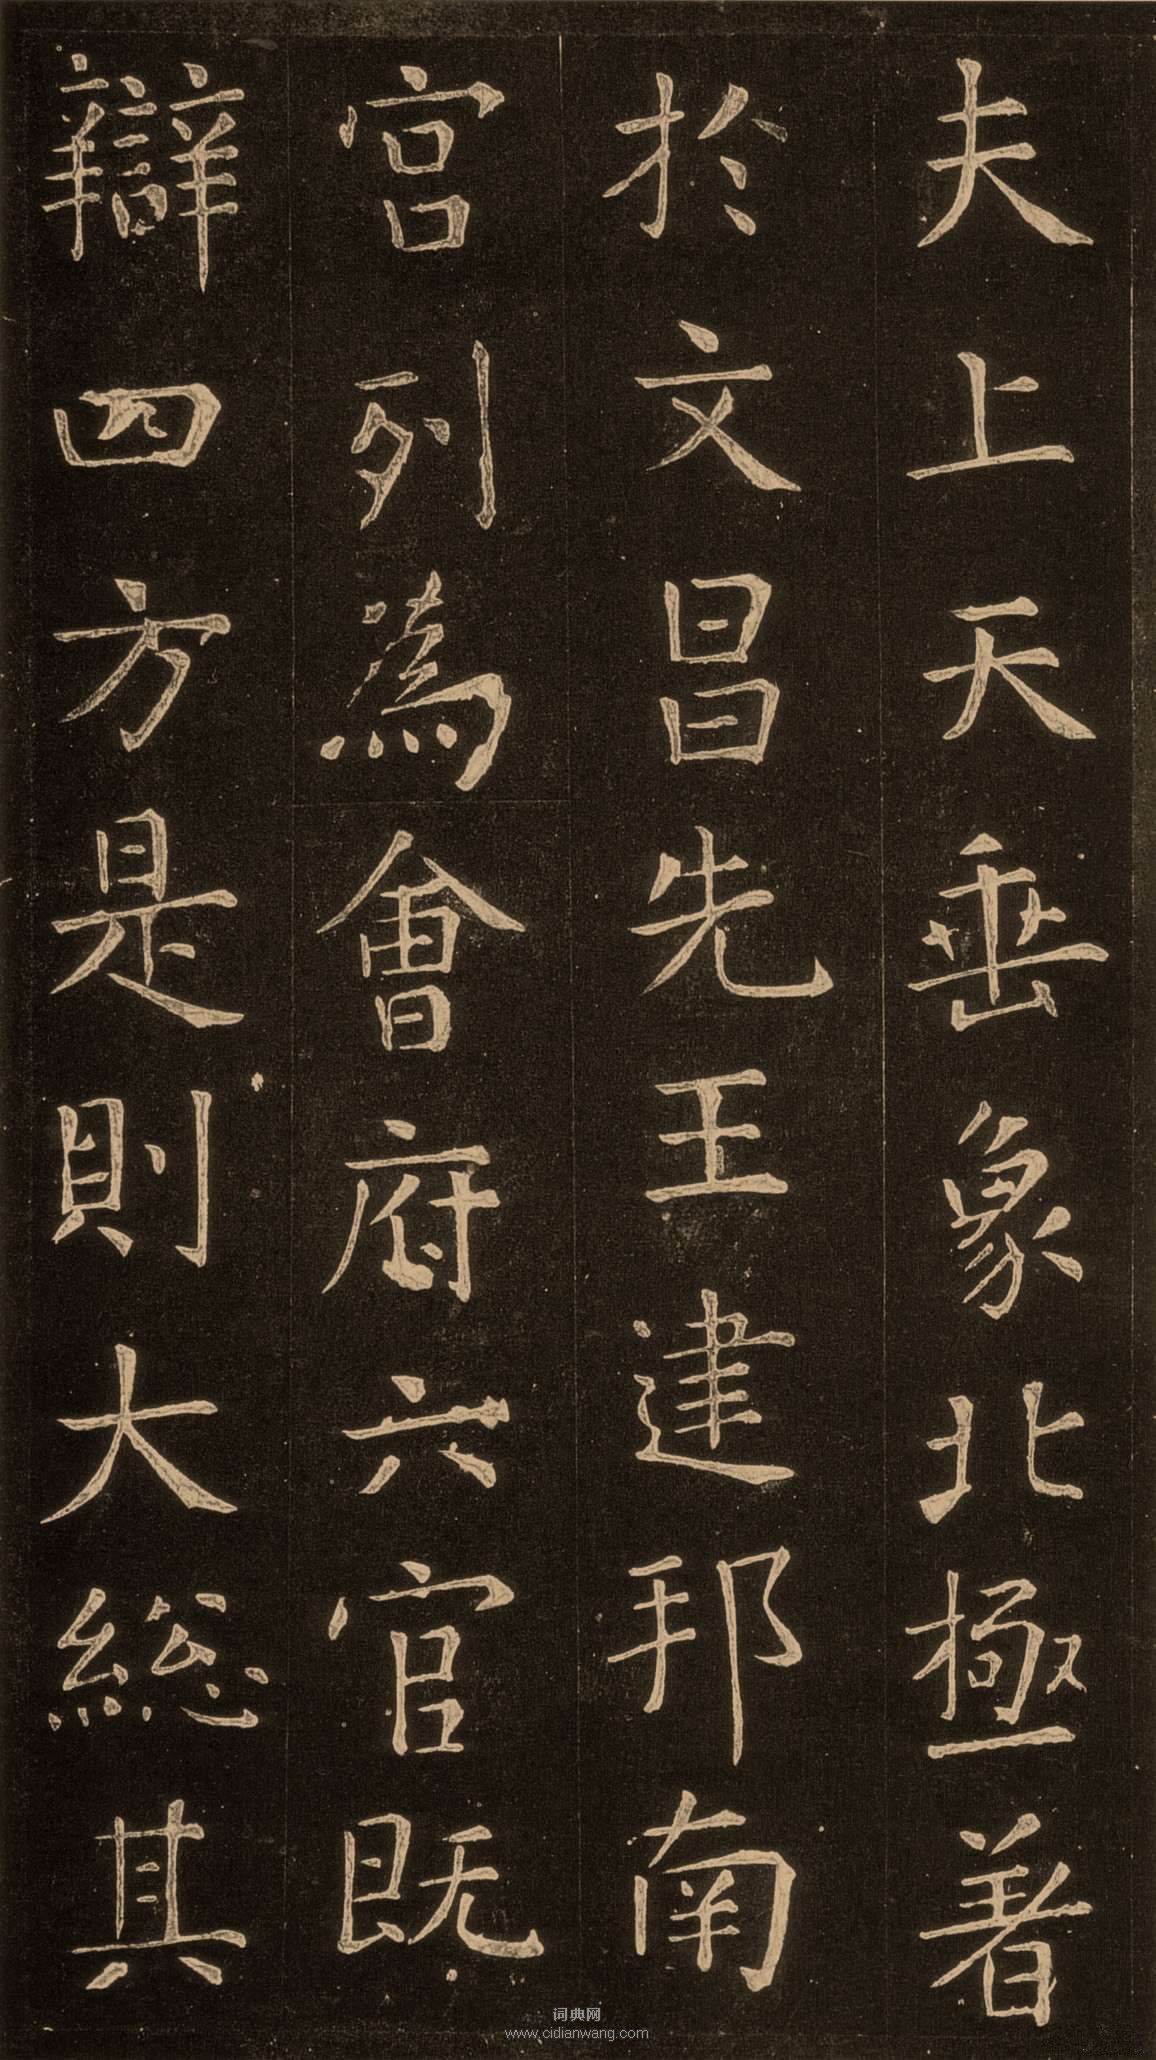 夫上天垂象北極著
於文昌先王建邦南
宮列為會府六官既
辯四方是則大総其
词典网
www.cidianwang.com